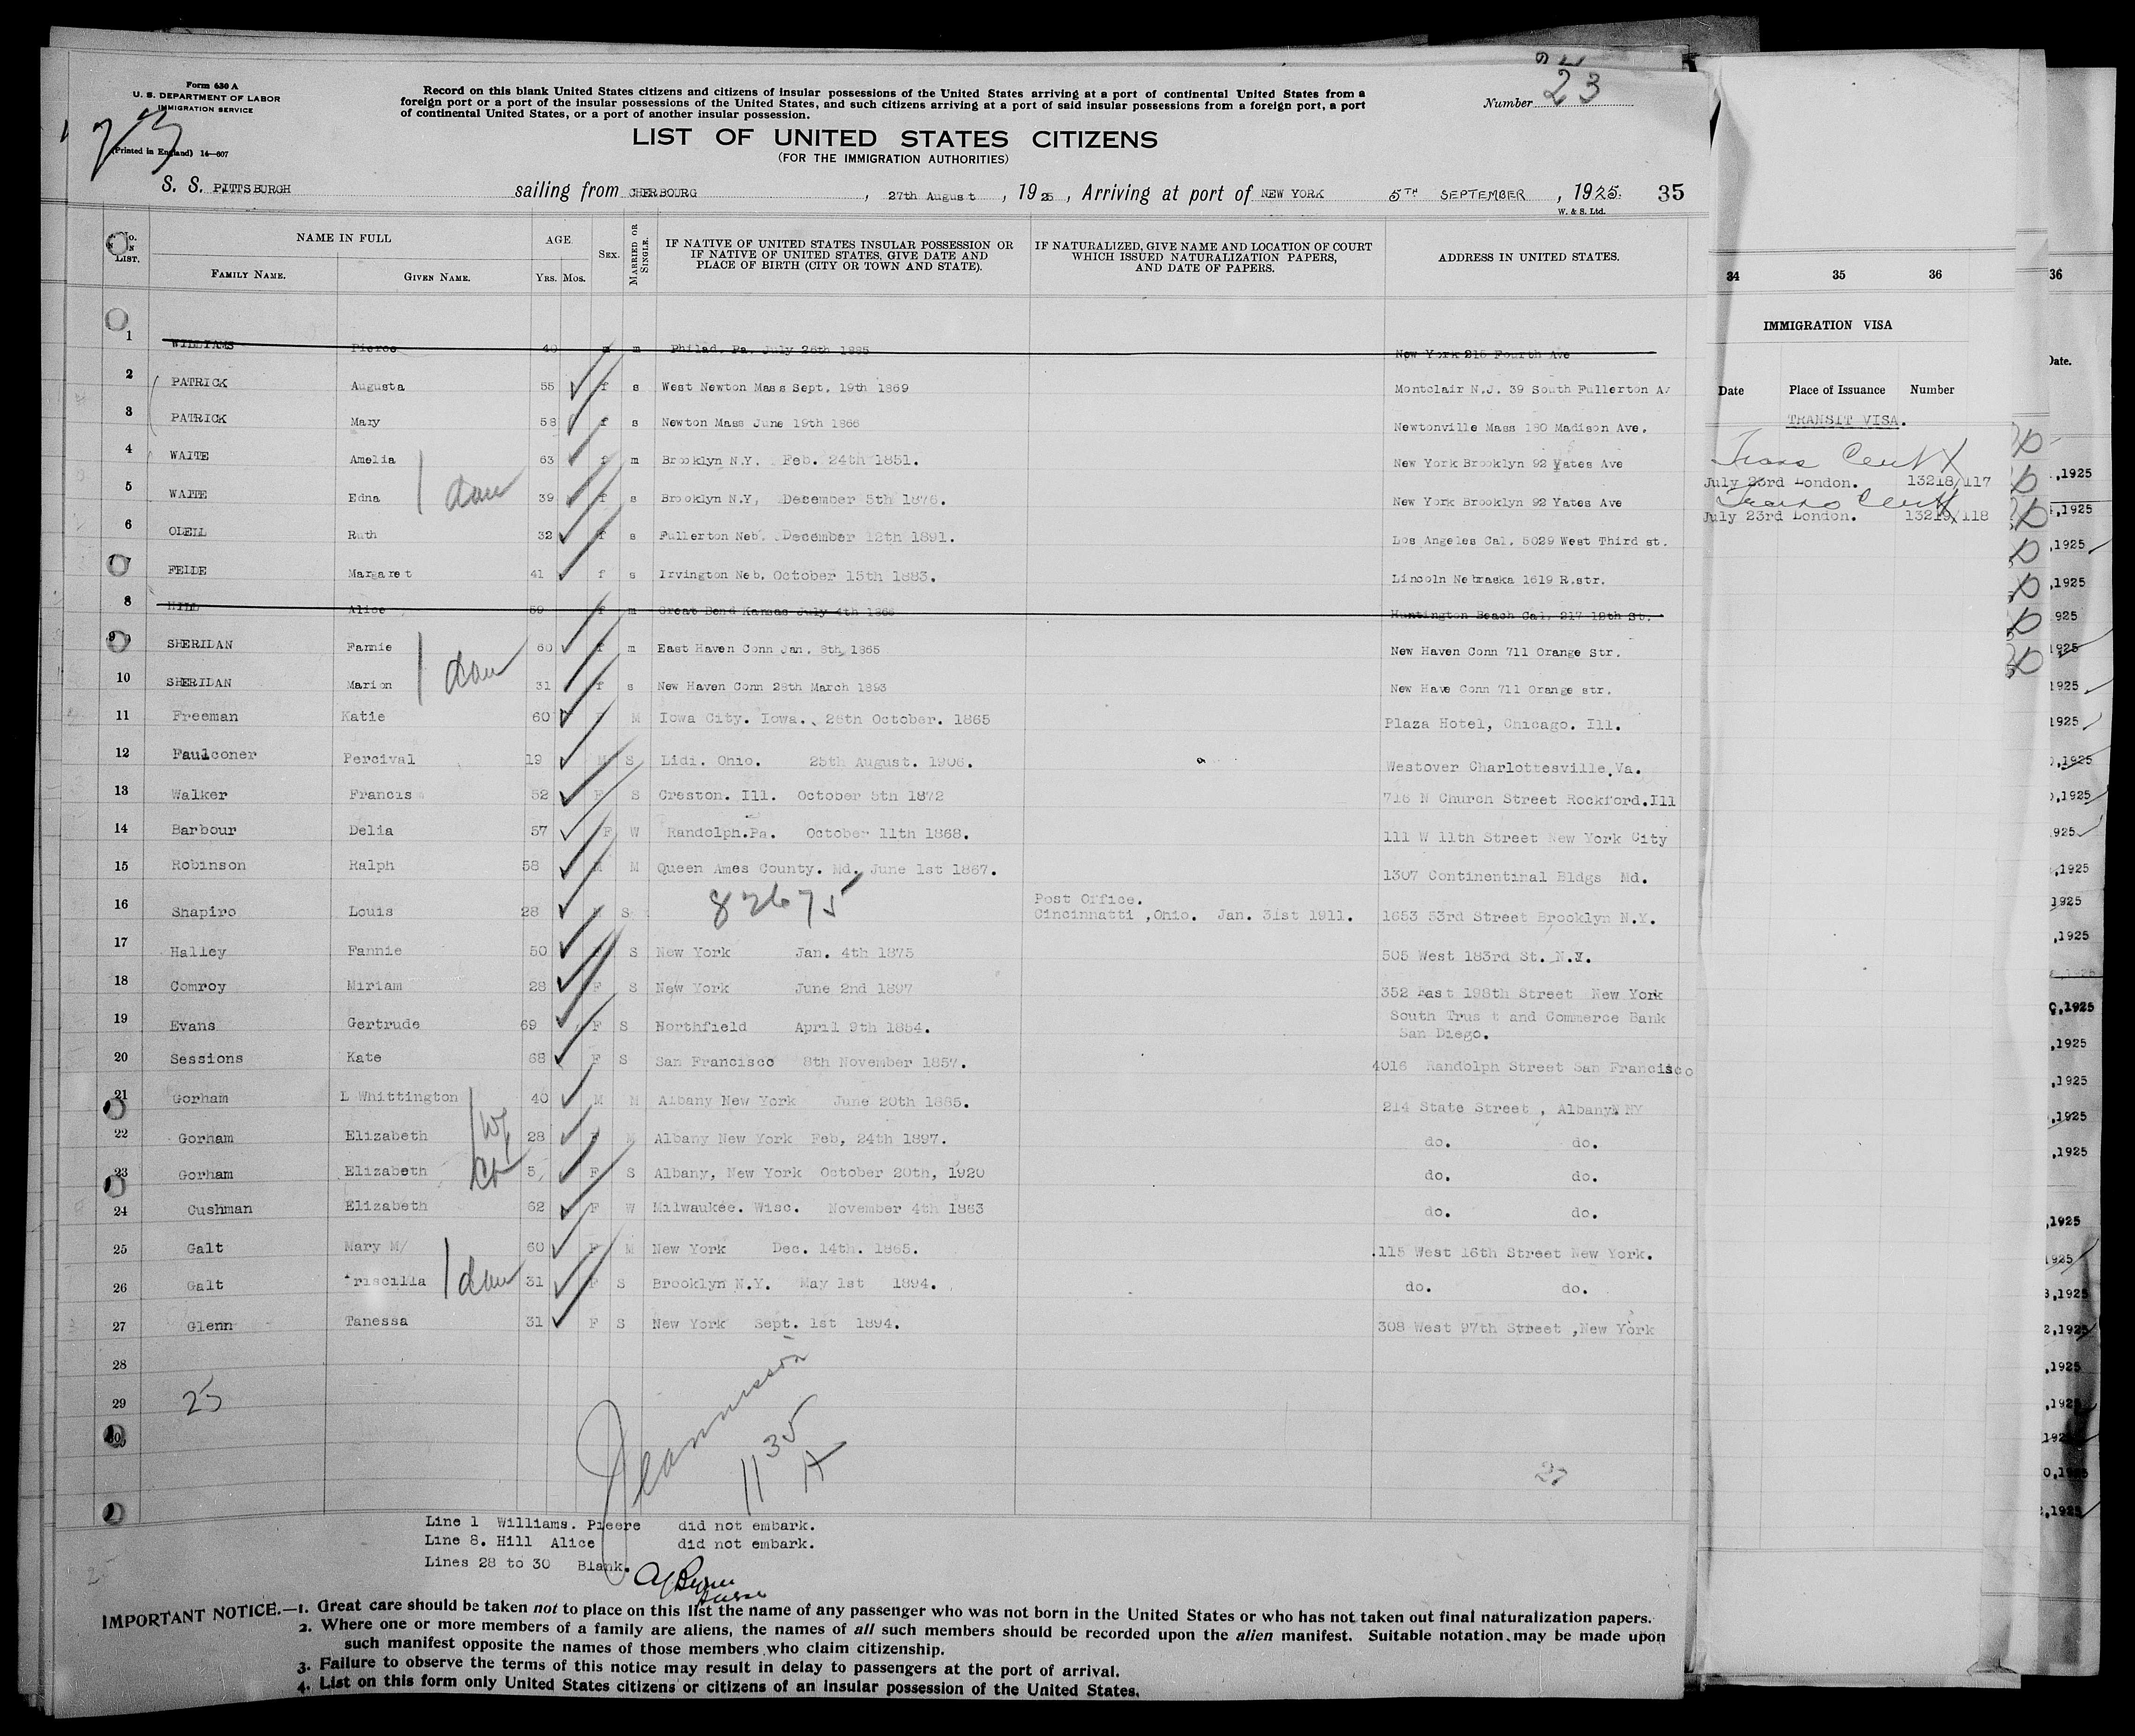 Form 630 A
U. S. DEPARTMENT OF LABOR
IMMIGRATION SERVICE
(Printed in England) 14—607
Record on this blank United States citizens and citizens of insular possessions of the United States arriving at a port of continental United States from a
foreign port or a port of the insular possessions of the United States, and such citizens arriving at a port of said insular possessions from a foreign port, a port
of continental United States, or a port of another insular possession.
Number 23
LIST OF UNITED STATES CITIZENS
(FOR THE IMMIGRATION AUTHORITIES)
S. S. PITTSBURGH sailing from CHERBOURG , 27th August , 1925 , Arriving at port of NEW YORK 5TH SEPTEMBER , 1925. 35
W. & S. Ltd.
No. LIST. NAME IN FULL AGE SEX. MARRIED OR SINGLE.
FAMILY NAME. GIVEN NAME. YRS. MOS.
IF NATIVE OF UNITED STATES INSULAR POSSESSION OR
IF NATIVE OF UNITED STATES, GIVE DATE AND
PLACE OF BIRTH (CITY OR TOWN AND STATE).
IF NATURALIZED, GIVE NAME AND LOCATION OF COURT
WHICH ISSUED NATURALIZATION PAPERS,
AND DATE OF PAPERS.
ADDRESS IN UNITED STATES.
1 WILLIAMS Pierce 40 m m Philad. Pa. July 26th 1885 New York 215 Fourth Ave
2 PATRICK Augusta 55 f s West Newton Mass Sept. 19th 1869 Montclair N.J. 39 South Fullerton Av
3 PATRICK Mary 58 f s Newton Mass June 19th 1866 Newtonville Mass 180 Madison Ave.
4 WAITE Amelia 63 f m Brooklyn N.Y. Feb. 24th 1851. New York Brooklyn 92 Yates Ave
5 WAITE Edna dau 39 f s Brooklyn N.Y, December 5th 1876. New York Brooklyn 92 Yates Ave
6 ODELL Ruth 32 f s Fullerton Neb. December 12th 1891. Los Angeles Cal. 5029 West Third st.
7 FEIDE Margaret 41 f s Irvington Neb. October 15th 1883. Lincoln Nebraska 1619 R.str.
8 HILL Alice 59 f m Great Bend Kansas July 4th 1866 Huntington Beach Cal. 217 12th St.
9 SHERIDAN Fannie 60 f m East Haven Conn Jan. 8th 1865 New Haven Conn 711 Orange Str.
10 SHERIDAN Marion dau 31 f s New Haven Conn 28th March 1893 New Have Conn 711 Orange str.
11 Freeman Katie 60 F M Iowa City. Iowa. 26th October. 1865 Plaza Hotel, Chicago. Ill.
12 Faulconer Percival 19 M S Lidi. Ohio. 25th August. 1906. Westover Charlottesville.Va.
13 Walker Francis 52 F S Creston. Ill. October 5th 1872 718 N Church Street Rockford.Ill
14 Barbour Delia 57 F W Randolph.Pa. October 11th 1868. 111 W 11th Street New York City
15 Robinson Ralph 58 M M Queen Ames County. Md. June 1st 1867. 1307 Continentinal Bldgs Md.
82675
Post Office.
16 Shapiro Louis 28 S Cincinnatti ,Ohio. Jan. 31st 1911. 1653 53rd Street Brooklyn N.Y.
17 Halley Fannie 50 S New York Jan. 4th 1875 505 West 183rd St. N.Y.
18 Comroy Miriam 28 F S New York June 2nd 1897 352 East 198th Street New York
19 Evans Gertrude 69 F S Northfield April 9th 1854. South Trust and Commerce Bank
San Diego.
20 Sessions Kate 68 F S San Francisco 8th November 1857. 4016 Randolph Street San Francisco
21 Gorham L Whittington 40 M M Albany New York June 20th 1885. 214 State Street , Albany NY
22 Gorham Elizabeth 28 F M Albany New York Feb, 24th 1897. do. do.
23 Gorham Elizabeth 5 F S Albany, New York October 20th, 1920 do. do.
24 Cushman Elizabeth 62 F W Milwaukee. Wisc. November 4th 1863 do. do.
25 Galt Mary M/ 60 F M New York Dec. 14th. 1865. 115 West 16th Street New York.
26 Galt Priscilla dau 31 F S Brooklyn N.Y. May 1st 1894. do. do.
27 Glenn Tanessa 31 F S New York Sept. 1st 1894. 308 West 97th Street ,New York
28
29 25
30
1135 A
27
Line 1 Williams. Pieere did not embark.
Line 8. Hill Alice did not embark.
Lines 28 to 30 Blank.
IMPORTANT NOTICE.—1. Great care should be taken not to place on this list the name of any passenger who was not born in the United States or who has not taken out final naturalization papers.
2. Where one or more members of a family are aliens, the names of all such members should be recorded upon the alien manifest. Suitable notation may be made upon
such manifest opposite the names of those members who claim citizenship.
3. Failure to observe the terms of this notice may result in delay to passengers at the port of arrival.
4. List on this form only United States citizens or citizens of an insular possession of the United States.
34 35 36
IMMIGRATION VISA
Date Place of Issuance Number
TRANSIT VISA.
July 23rd London. 13218/117
July 23rd London. 13219/118
36
Date.